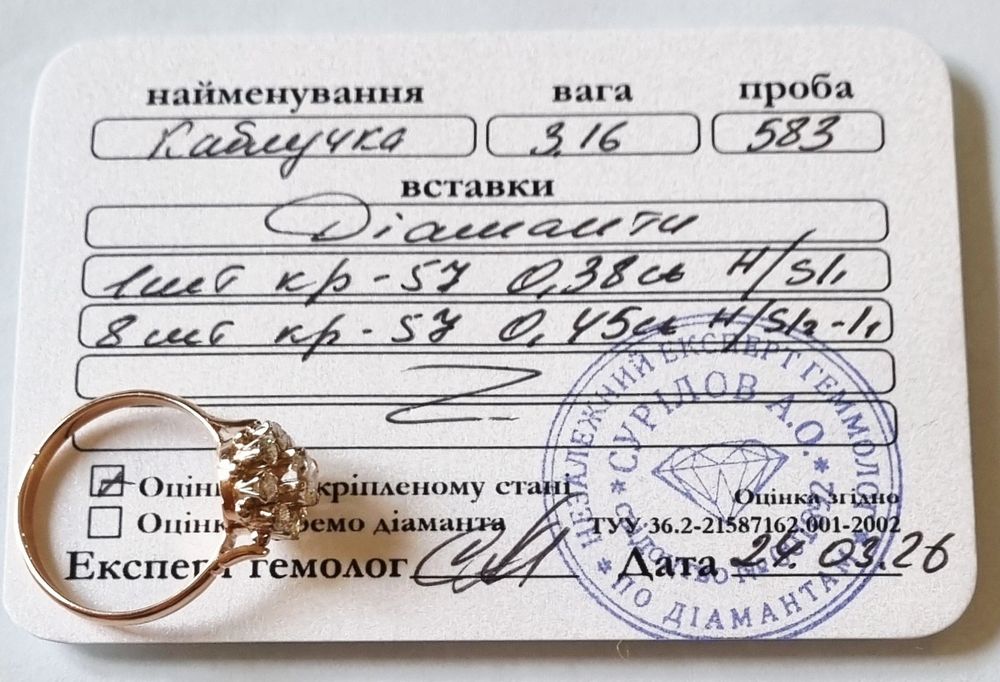 найменування вага проба
Каблучка 3.16 583
вставки
Діаманти
1 шт кр-57 0,38ct H/SI1
8 шт кр-57 0,45ct H/SI2-I1
Оцін кріпленому стані
Оцінк ремо діаманта
Оцінка згідно
ТУУ 36.2-21587162.001-2002
Експерт гемолог Дата 24.03.26
НЕЗАЛЕЖНИЙ ЕКСПЕРТ ГЕММОЛОГ
СУРІЛОВ А.О.
ПО ДІАМАНТАМ